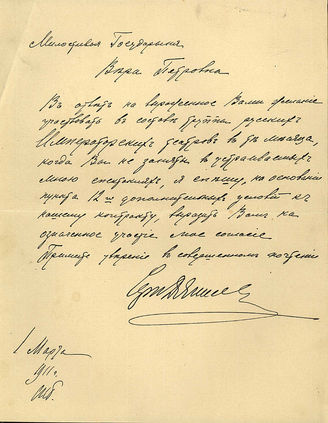 Милостивая Государыня
Вера Петровна
Въ отвѣтъ на выраженное Вами желание
участвовать въ составѣ труппы русскихъ
Императорскихъ театровъ въ тѣ мѣсяца,
когда Вы не заняты въ устраиваемыхъ
мною спектакляхъ, я спѣшу, на основании
пункта 12го дополнительныхъ условий къ
нашему контракту, выразить Вамъ на
означенное участие мое согласие
Примите уверение въ совершенномъ почтении
1 Марта
1911 г.
СПб.